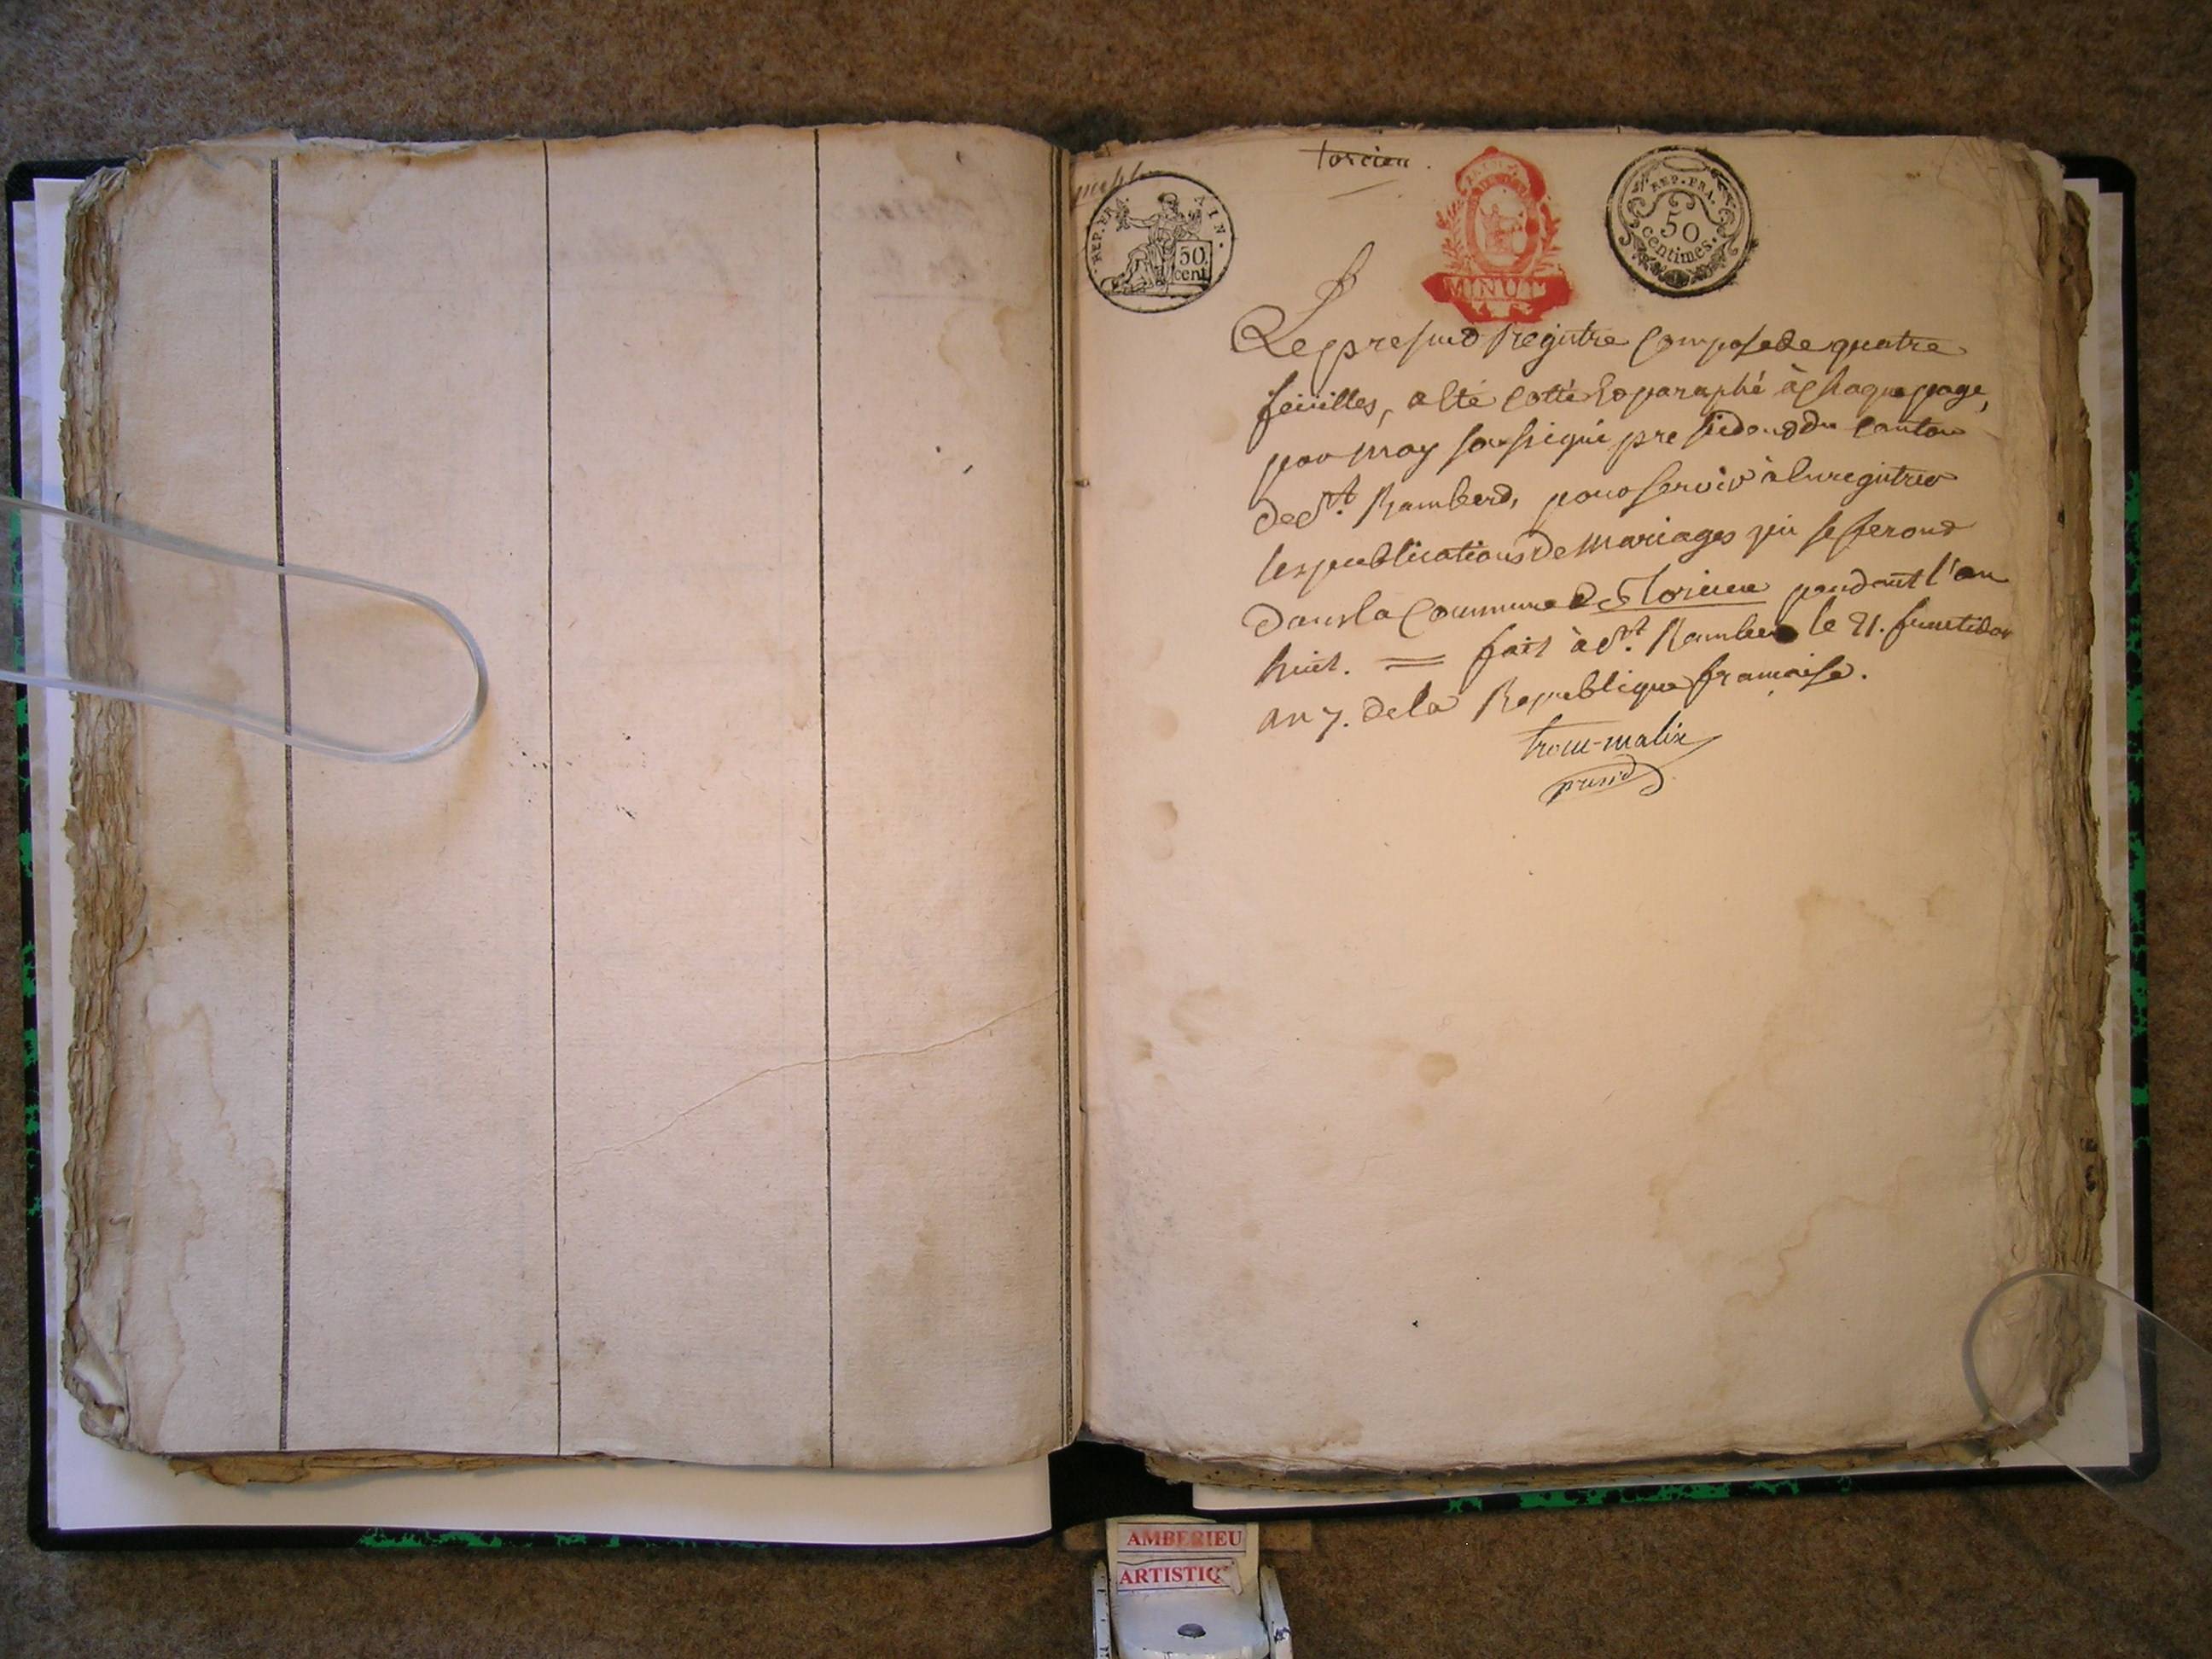 torcieu.
REP. FRA. AIN.
50
cent.
MINUTE
REP. FRA.
50
centimes.
Le present registre composé de quatre
feuilles, a été cotté & paraphé à chaque page,
par moy soussigné president du canton
de St. Rambert, pour servir à enregistrer
les publications de mariages qui se feront
dans la commune de Torcieu pendant l'an
huit. = fait à St. Rambert le 21. fructidor
an 7. de la Republique française.
presid
AMBERIEU
ARTISTIQ